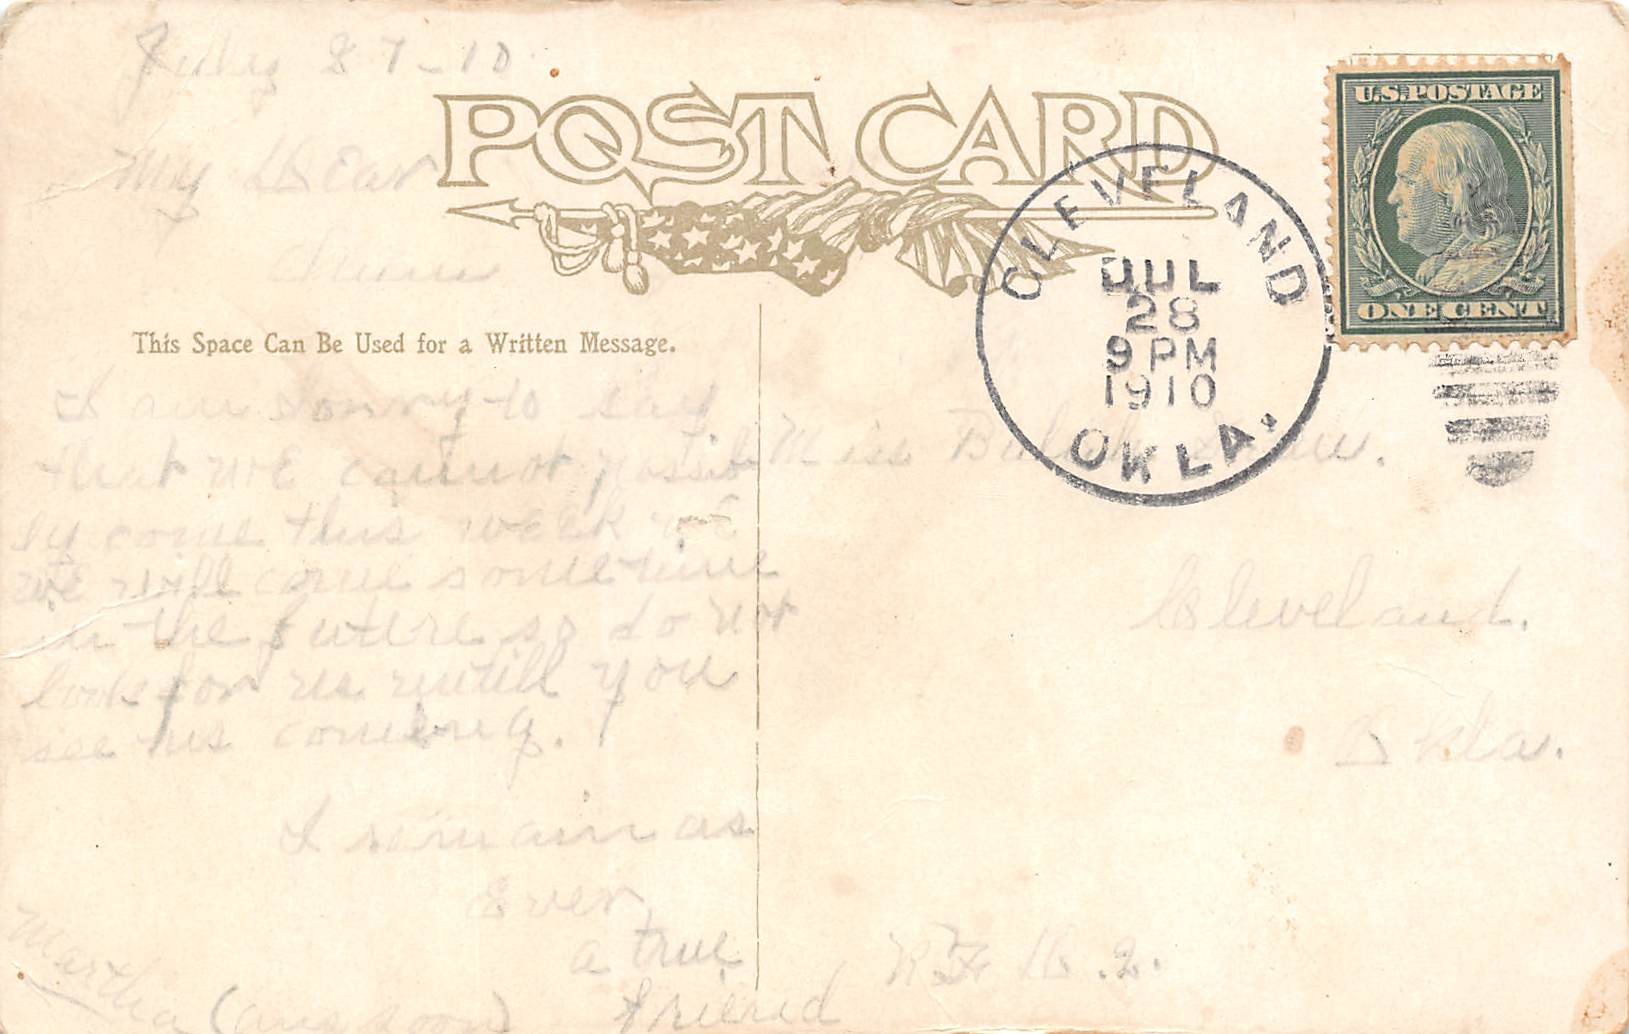 July 27-10
POST CARD
My Dear
U.S. POSTAGE
ONE CENT
CLEVELAND
JUL
28
9 PM
1910
OKLA.
This Space Can Be Used for a Written Message.
I am sorry to say
that we cannot possib
ly come this week
we will come sometime
in the futere so do not
look for us untill you
see us coming.
I remain as
Ever
a true
friend
Martha (ans soon)
Miss
Cleveland.
Okla.
RFD.2.